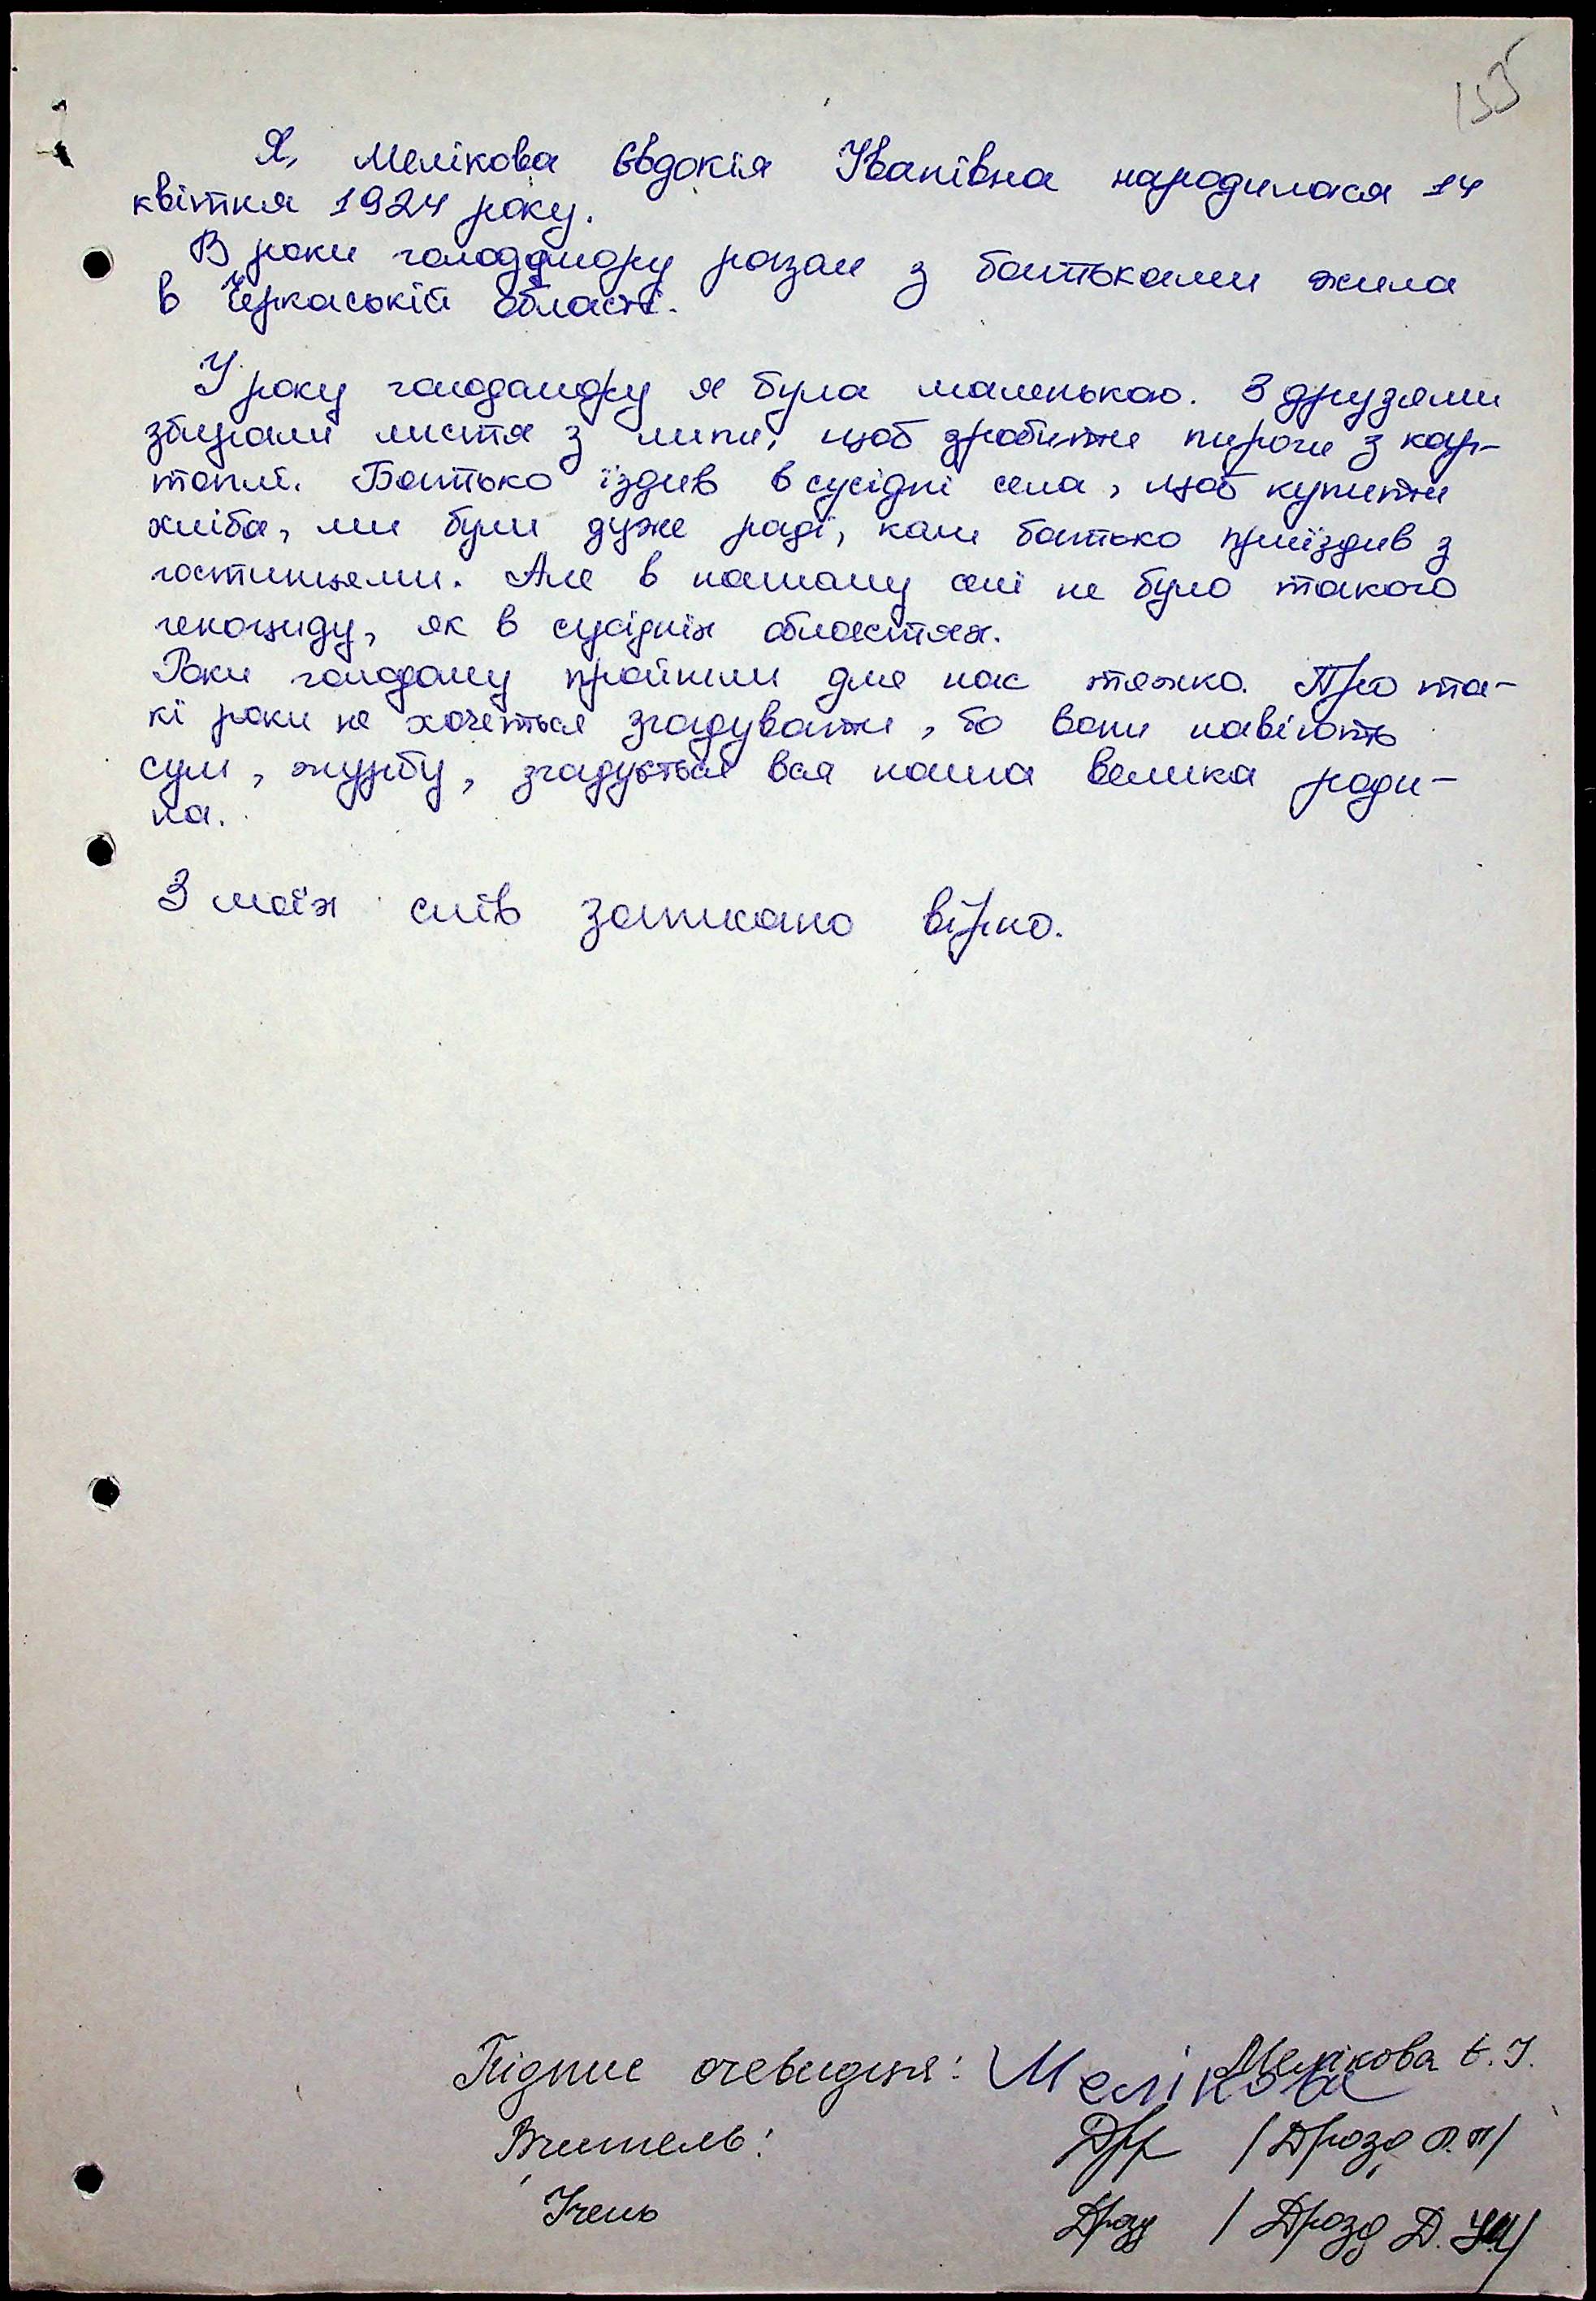 155
Я, Мелікова Євдокія Іванівна народилася 14
квітня 1924 року.
В роки голоддмору разом з батьками жила
в Черкаській області.
У року голодамору я була маленькою. З друзями
збирали листя з липи, щоб зробити пироги з кар-
топлі. Батько їздив в сусідні села, щоб купити
хліба, ми були дуже раді, коли батько приїздив з
гостинцями. Але в нашому селі не було такого
геноциду, як в сусідніх областях.
Роки голодому пройшли для нас тяжко. Про та-
кі роки не хочеться згадувати, бо вони навіюють
сум, журбу, згадується вся наша велика роди-
на.
З моїх слів записано вірно.
Підпис очевидця: Мелікова Мелікова Є. І.
Вчитель: /Дрозд П.П/
Учень Дрозд /Дрозд Д.